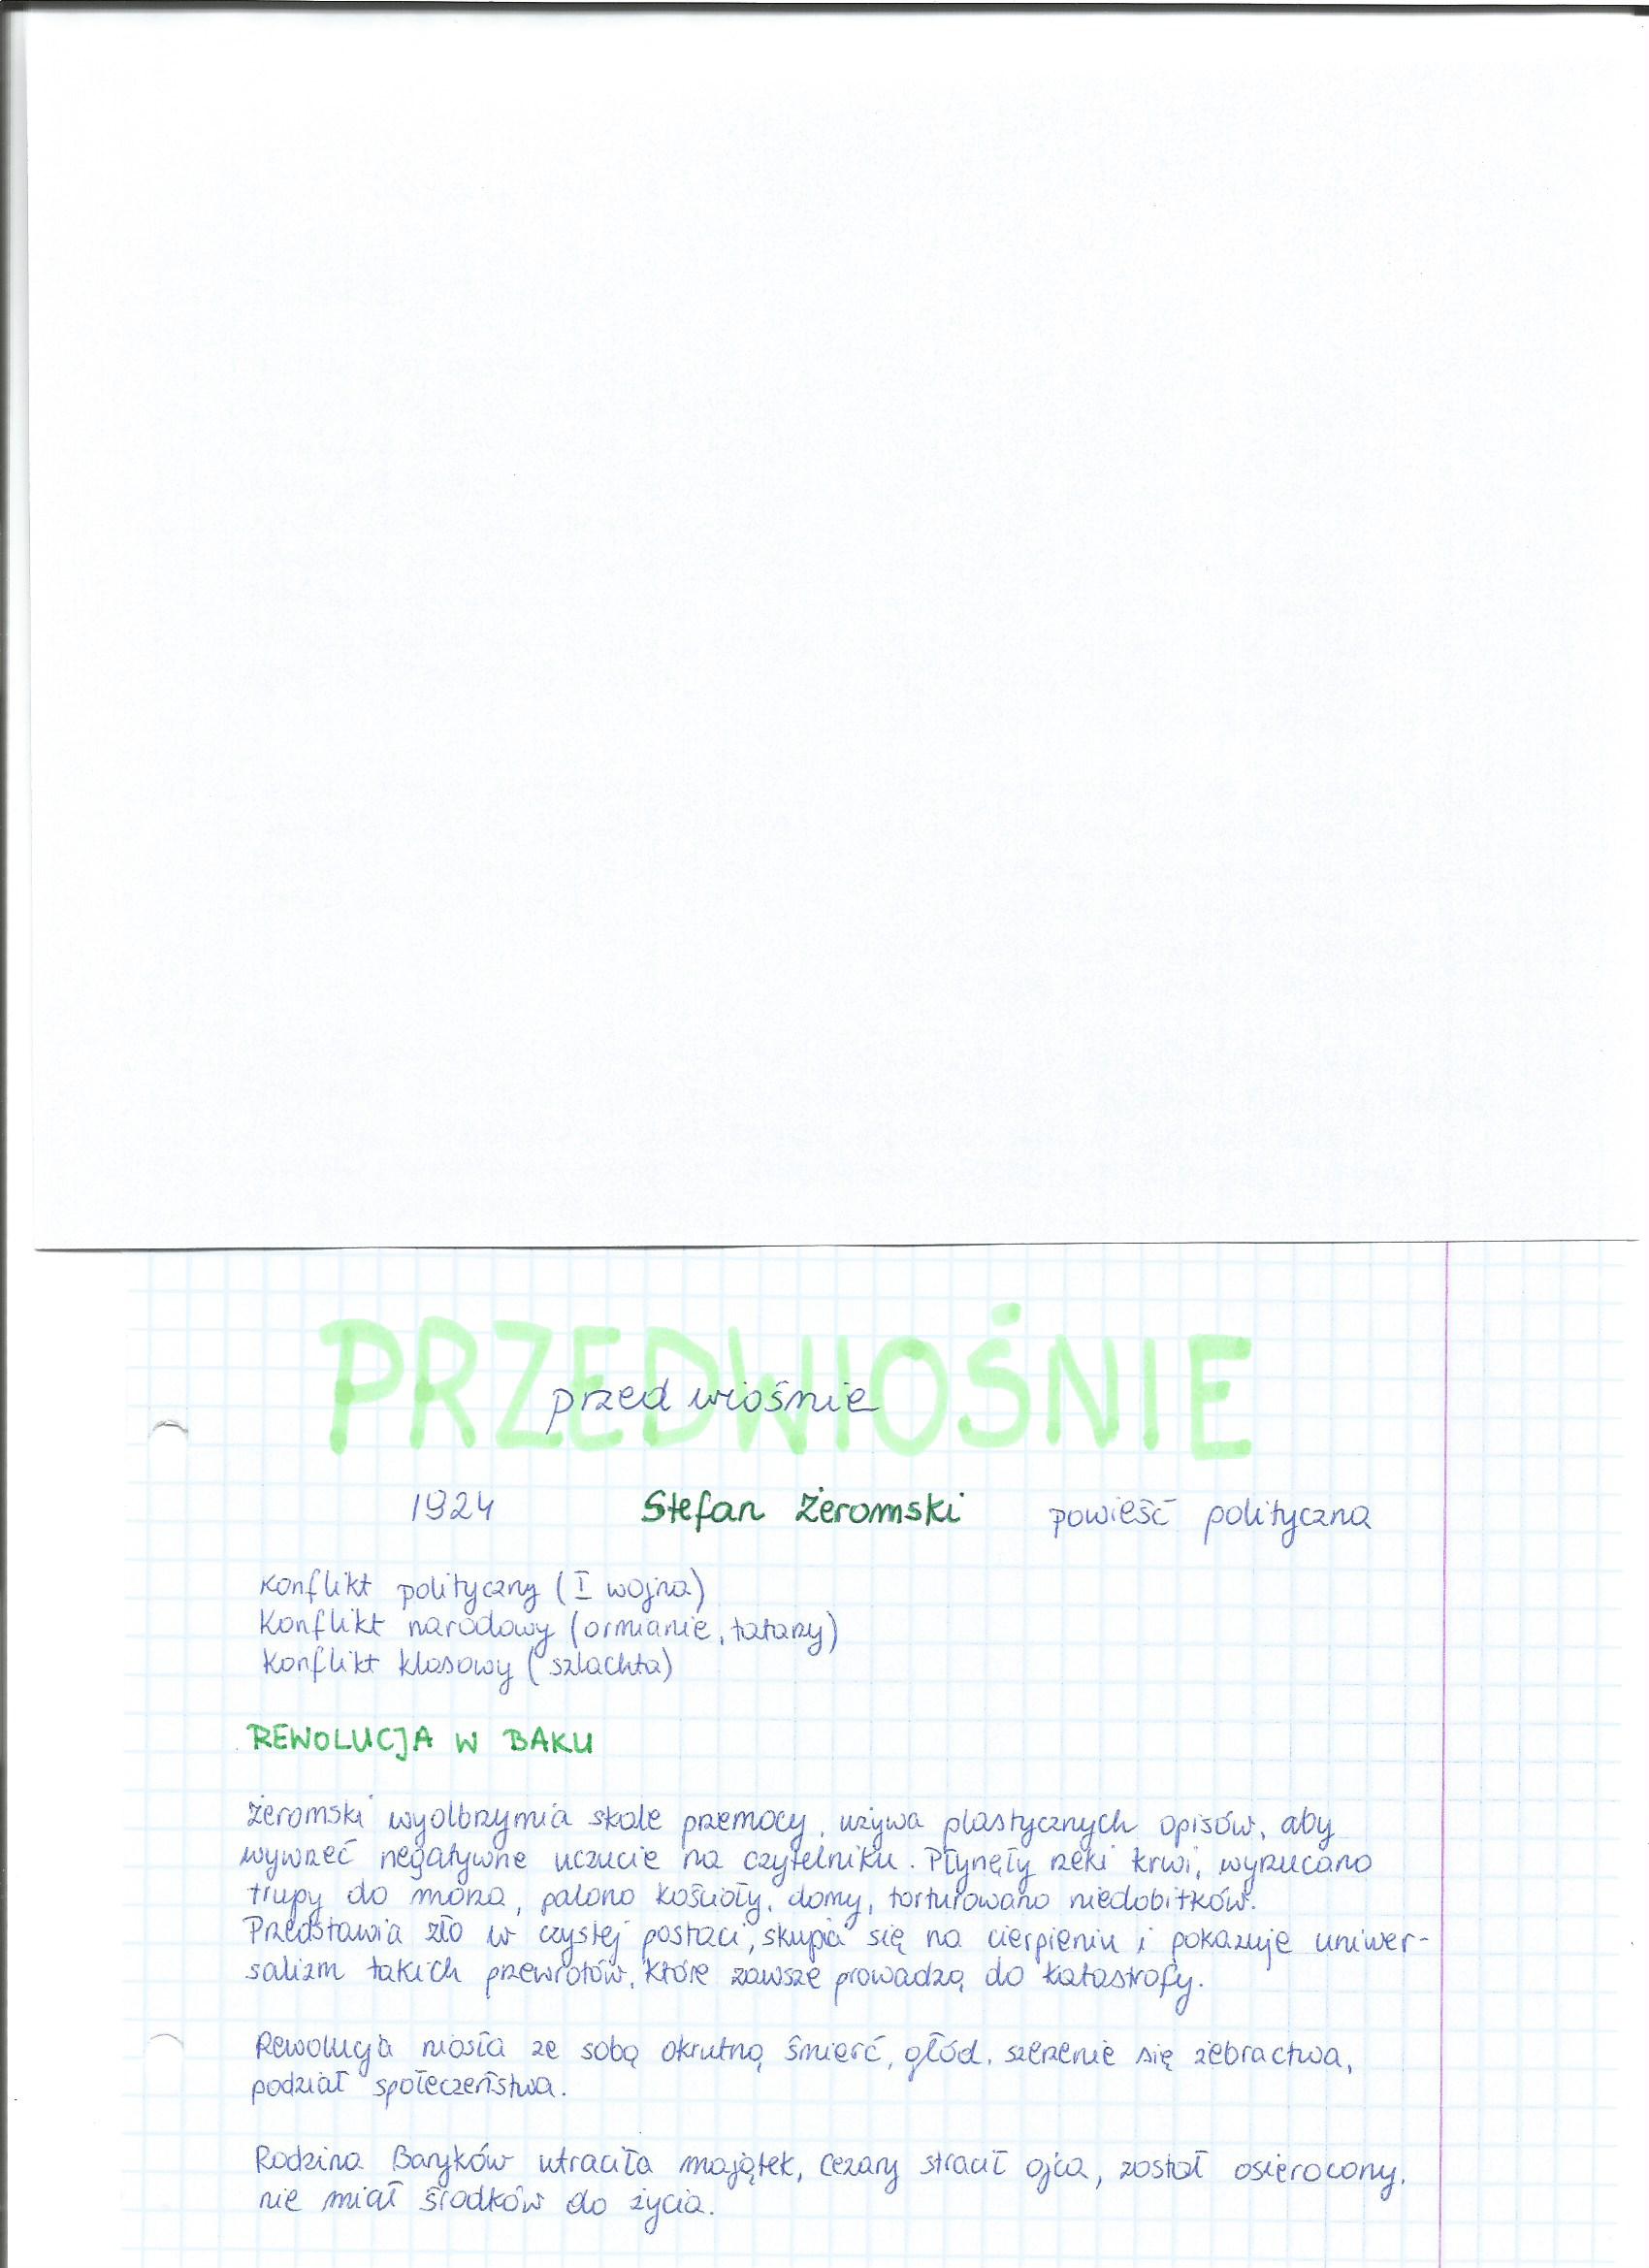 PRZEDWIOŚNIE
przed wiośnie
1924 Stefan Żeromski powieść polityczna
Konflikt polityczny (I wojna)
Konflikt narodowy (ormianie, tatarzy)
Konflikt klasowy (szlachta)
REWOLUCJA W BAKU
Żeromski wyolbrzymia skale przemocy, używa plastycznych opisów, aby
wywrzeć negatywne uczucie na czytelniku. Płynęły rzeki krwi, wyrzucano
trupy do morza, palono kościoły, domy, torturowano niedobitków.
Przedstawia zło w czystej postaci, skupia się na cierpieniu i pokazuje uniwer-
salizm takich przewrotów, które zawsze prowadzą do katastrofy.
Rewolucja niosła ze sobą okrutną śmierć, głód, szerzenie się żebractwa,
podział społeczeństwa.
Rodzina Baryków utraciła majątek, Cezary stracił ojca, został osierocony,
nie miał środków do życia.